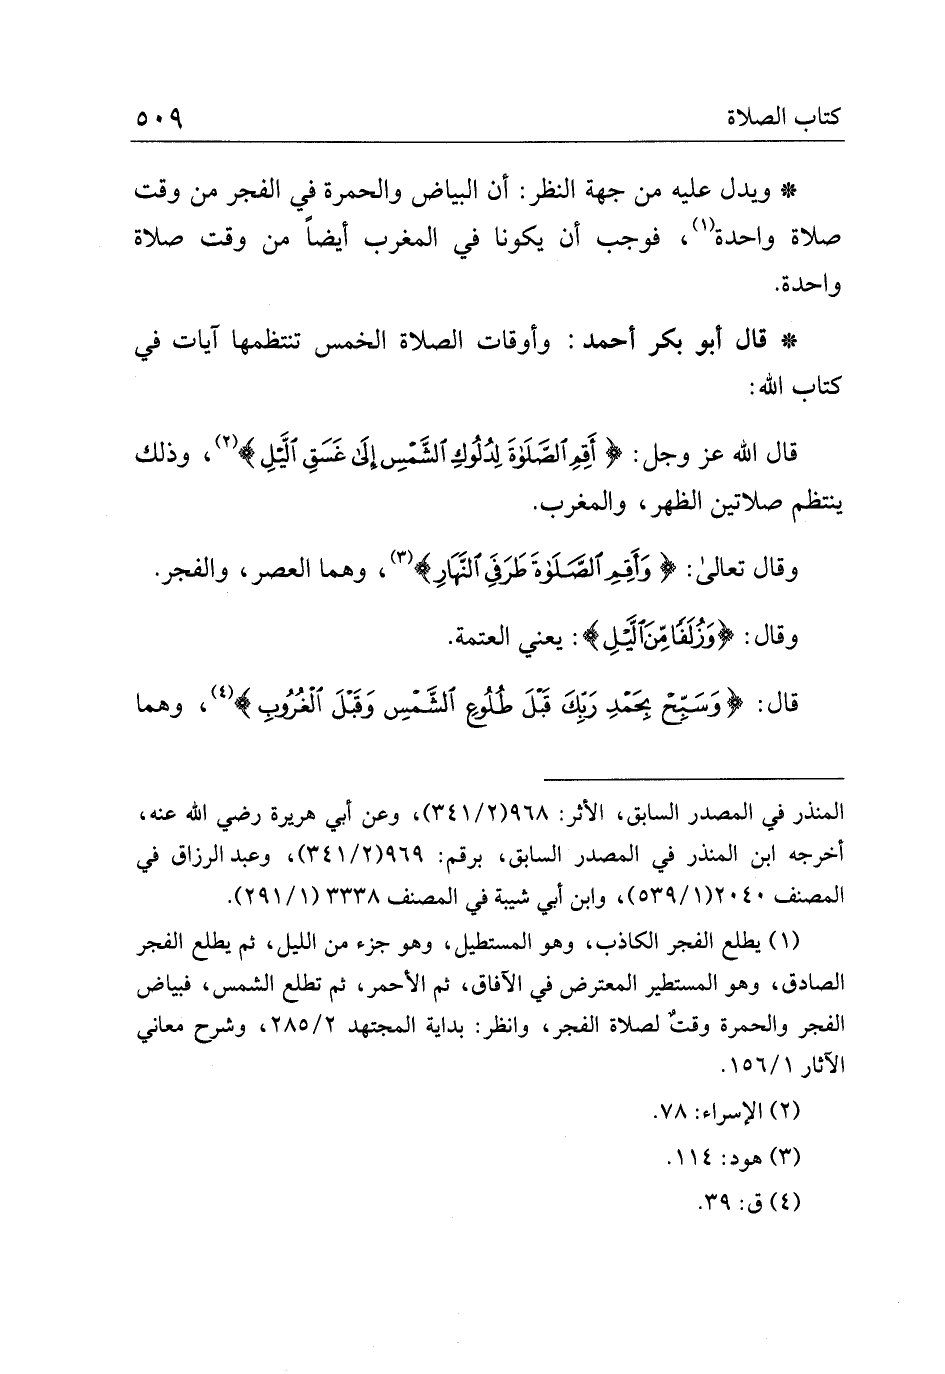 كتاب الصلاة ٥٠٩
* ويدل عليه من جهة النظر: أن البياض والحمرة في الفجر من وقت
صلاة واحدة(١)، فوجب أن يكونا في المغرب أيضاً من وقت صلاة
واحدة.
* قال أبو بكر أحمد: وأوقات الصلاة الخمس تنتظمها آيات في
كتاب الله:
قال الله عز وجل: ﴿أَقِمِ ٱلصَّلَوٰةَ لِدُلُوكِ ٱلشَّمْسِ إِلَىٰ غَسَقِ ٱلَّيْلِ﴾(٢)، وذلك
ينتظم صلاتين الظهر، والمغرب.
وقال تعالىٰ: ﴿وَأَقِمِ ٱلصَّلَوٰةَ طَرَفَيِ ٱلنَّهَارِ﴾(٣)، وهما العصر، والفجر.
وقال: ﴿وَزُلَفًا مِّنَ ٱلَّيْلِ﴾: يعني العتمة.
قال: ﴿وَسَبِّحْ بِحَمْدِ رَبِّكَ قَبْلَ طُلُوعِ ٱلشَّمْسِ وَقَبْلَ ٱلْغُرُوبِ﴾(٤)، وهما
المنذر في المصدر السابق، الأثر: ٩٦٨(٣٤١/٢)، وعن أبي هريرة رضي الله عنه،
أخرجه ابن المنذر في المصدر السابق، برقم: ٩٦٩(٣٤١/٢)، وعبد الرزاق في
المصنف ٢٠٤٠(٥٣٩/١)، وابن أبي شيبة في المصنف ٣٣٣٨ (٢٩١/١).
(١) يطلع الفجر الكاذب، وهو المستطيل، وهو جزء من الليل، ثم يطلع الفجر
الصادق، وهو المستطير المعترض في الآفاق، ثم الأحمر، ثم تطلع الشمس، فبياض
الفجر والحمرة وقتٌ لصلاة الفجر، وانظر: بداية المجتهد ٢٨٥/٢، وشرح معاني
الآثار ١٥٦/١.
(٢) الإسراء: ٧٨.
(٣) هود: ١١٤.
(٤) ق: ٣٩.